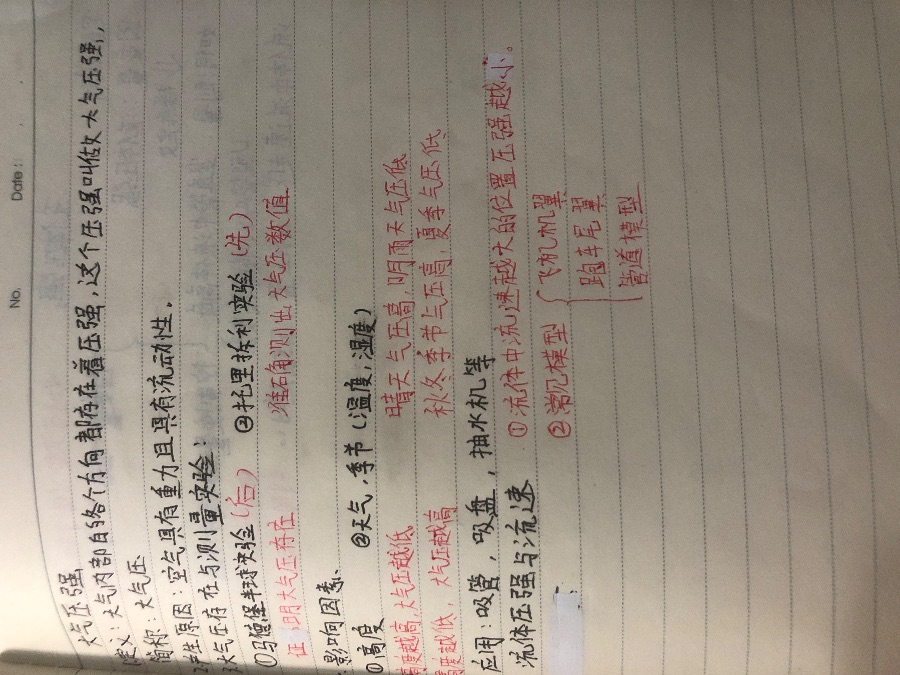 No.
Date :
大气压强
定义：大气内部的各个方向都存在着压强，这个压强叫做大气压强，
简称：大气压
产生原因：空气具有重力且具有流动性．
大气压存在与测量实验：
①马德堡半球实验（后） ②托里拆利实验（先）
证明大气压存在 准确测出大气压数值
影响因素、
①高度 ②天气，季节（温度，湿度）
高度越高，大气压越低 晴天气压高，阴雨天气压低
高度越低，大气压越高 秋冬季节气压高，夏季气压低
应用：吸管，吸盘，抽水机等
流体压强与流速 ①流体中流速越大的位置压强越小。
②常见模型 飞机机翼
跑车尾翼
管道模型